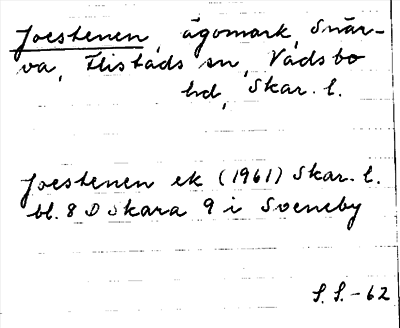 Joestenen, ägomark, Snär-
va, Flistads sn, Vadsbo
hd, Skar. l.
Joestenen ek (1961) Skar. l.
bl. 8 D Skara 9 i Sveneby
S. S. -62